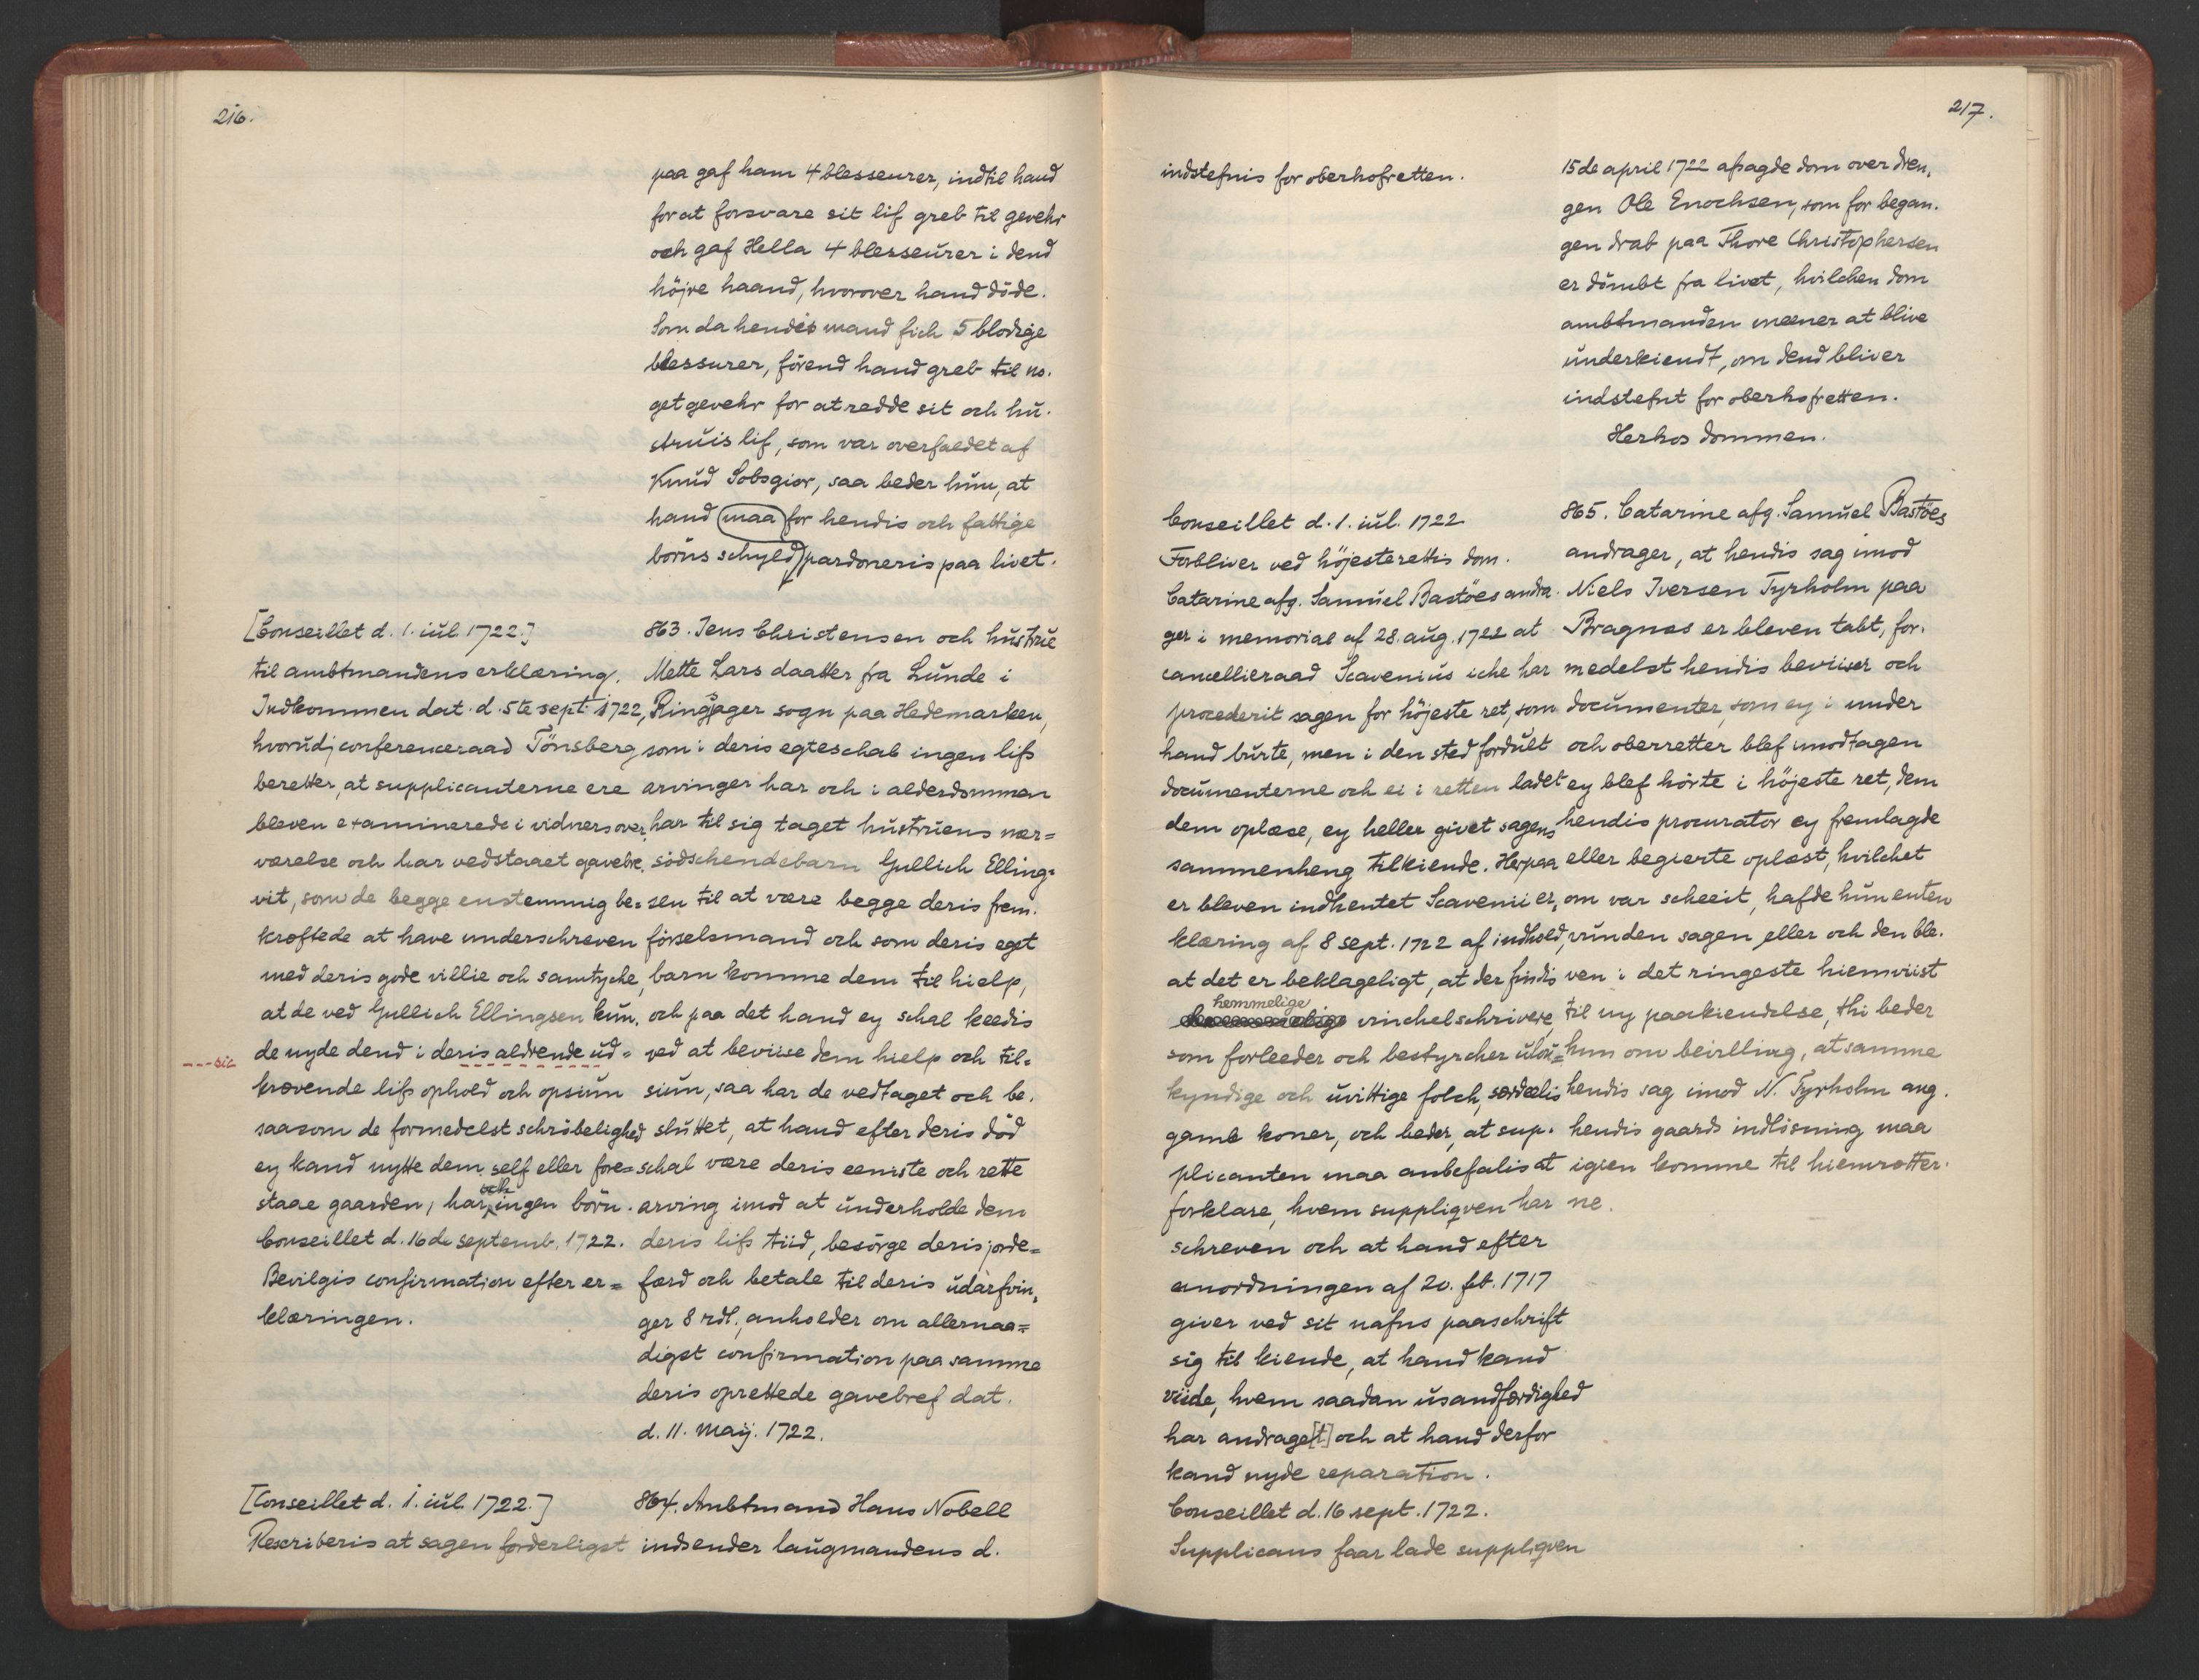 216.
paa gaf ham 4 blesseurer, indtil hand
for at forsvare sit lif greb til gevehr
och gaf Hella 4 blesseurer i dend
höjre haand, hvorover hand döde.
Som da hendes mand fich 5 blodige
blessurer, förend hand greb til no-
get gevehr for at redde sit och hu-
struis lif, som var overfaldet af
Knud Sobsgior, saa beder hun, at
hand maa for hendis och fattige
börns schyld pardoneris paa livet.
[Conseillet d. 1. iul. 1722.]
til ambtmandens erklæring.
Indkommen dat. d. 5te sept 1722,
hvorudj conferenceraad Tönsberg
beretter, at supplicanterne ere
bleven examinerede i vidners over-
værelse och har vedstaaet gavebre-
vit, som de begge enstemmig be=
kræftede at have underschreven
med deris gode villie och samtyche,
at de ved Gullich Ellingsen kun-
de nyde dend i deris aldrende ud=
--- sic
krævende lifs ophold och opsiun
saasom de formedelst schröbelighed
ey kand nytte dem self eller fore=
staae gaarden, har och ingen börn.
Conseillet d. 16de septemb. 1722.
Bevilgis confirmation efter er=
klæringen.
863. Jens Christensen och hustrue
Mette Lars daatter fra Lunde i
Ringsager sogn paa Hedemarken,
som i deris egteschab ingen lifs
arvinger har och i alderdommen
har til sig taget hustruens nær=
södschendebarn Gullich Elling=
sen til at være begge deris frem-
förselsmand och som deris eget
barn komme dem til hielp,
och paa det hand ey schal keedis
ved at beviise dem hielp och til=
siun, saa har de vedtaget och be-
sluttet, at hand efter deris död
schal være deris eeniste och rette
arving imod at underholde dem
deris lifs tiid, besörge deris jorde=
færd och betale til deris udarfvin-
ger 8 rdl., anholder om allernaa=
digst confirmation paa samme
deris oprettede gavebref dat.
d. 11. maij. 1722.
[Conseillet d. 1. iul. 1722.]
Rescriberis at sagen forderligst
864. Ambtmand Hans Nobell
indsender laugmandens d.
217.
indstefnis for oberhofretten.
15de april 1722 afsagde dom over dren-
gen Ole Enochsen, som for began-
gen drab paa Thore Christophersen
er dömbt fra livet, hvilchen dom
ambtmanden meener at blive
underkiendt, om dend bliver
indstefnt for oberhofretten.
Herhos dommen.
Conseillet d. 1. iul. 1722
Forbliver ved höjesterettis dom.
Catarine afg. Samuel Bastöes andra-
ger i memorial af 28. aug. 1722 at
cancellieraad Scavenius iche har
procederit sagen for höjeste ret, som
hand burte, men i den sted fordult
documenterne och ei i retten ladet
dem oplæse, ey heller givet sagens
sammenheng tilkiende. Herpaa
er bleven indhentet Scavenii er-
klæring af 8 sept. 1722 af indhold,
at det er beklageligt, at der findis
hemmelige
vinchelschrivere,
som forleeder och bestyrcher ulov=
kyndige och uvittige folch, særdælis
gamle koner, och beder, at sup-
plicanten maa anbefalis at
forklare, hvem suppliqven har
schreven och at hand efter
anordningen af 20. feb. 1717
giver ved sit nafns paaschrift
sig til kiende, at hand kand
viide, hvem saadan usandfærdighed
har andrage[t] och at hand derfor
kand nyde reparation.
Conseillet d. 16 sept. 1722.
Supplicans faar lade suppliqven
865. Catarine afg. Samuel Bastöes
andrager, at hendis sag imod
Niels Iversen Tyrholm paa
Bragnæs er bleven tabt, for-
medelst hendis beviiser och
documenter, som ey i under
och oberretter blef imodtagen
ey blef hörte i höjeste ret, dem
hendis procurator ey fremlagde
eller begierte oplæst, hvilchet
om var scheeit, hafde hun enten
vunden sagen eller och den ble-
ven i det ringeste hiemviist
til ny paakiendelse, thi beder
hun om bevilling, at samme
hendis sag imod N. Tyrholm ang.
hendis gaards indlösning maa
igien komme til hiemrætter-
ne.